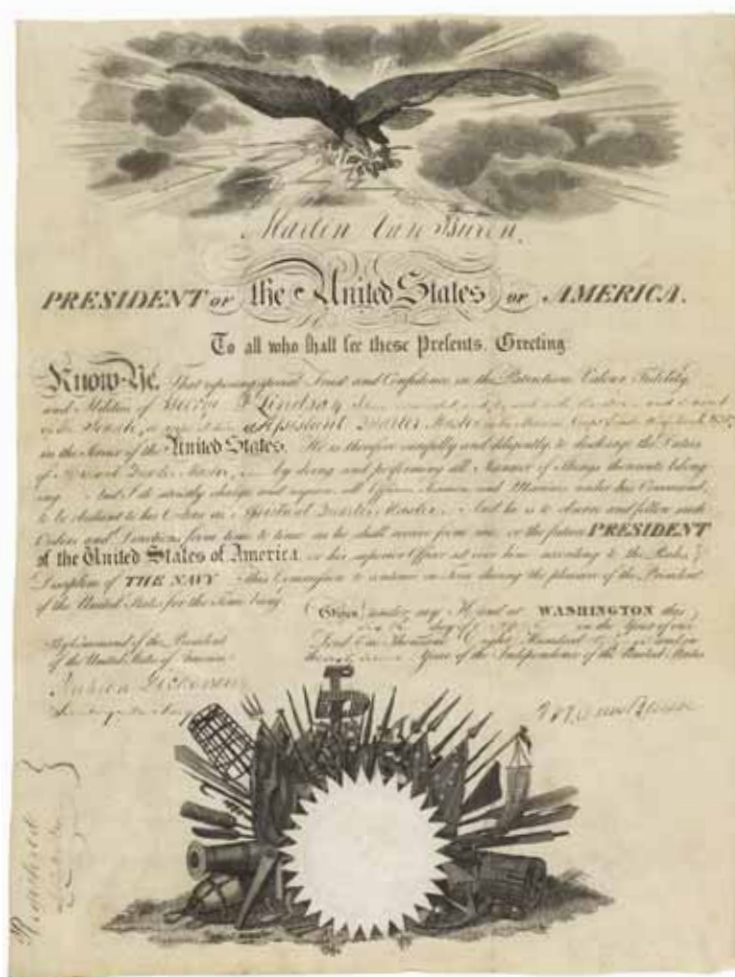 Martin Van Buren,
PRESIDENT OF the United States OF AMERICA.
To all who shall see these Presents, Greeting
Know Ye, That reposing special Trust and Confidence in the Patriotism Valour Fidelity
and Abilities of George F Lindsay
of the Senate, Assistant Quarter Master
in the Service of the United States. He is therefore carefully and diligently to discharge the Duties
of Assistant Quarter Master, by doing and performing all Manner of Things thereunto belong
ing. And I do strictly charge and require all Officers Seamen and Marines under his Command,
to be obedient to his Orders as Assistant Quarter Master. And he is to observe and follow such
Orders and Directions from time to time as he shall receive from me, or the future PRESIDENT
of the United States of America or his superior Officer set over him according to the Rules &
Discipline of THE NAVY this Commission to continue in Force during the pleasure of the President
of the United States for the time being
Given under my Hand at WASHINGTON this
day of in the Year of our
By Command of the President
Lord One Thousand Eight Hundred and in
of the United States of America
the Year of the Independence of the United States
M Van Buren